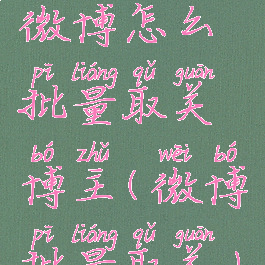 微博怎么
pī liàng qǔ guān
批量取关
bó zhǔ wēi bó
博主(微博
pī liàng qǔ guān
批量取关)